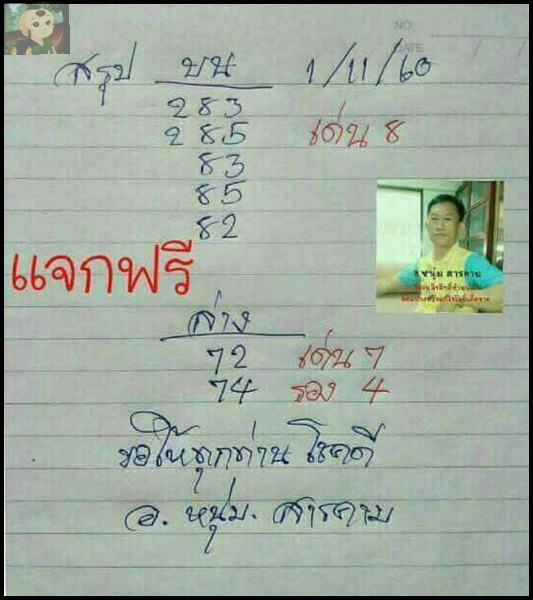 NO.
DATE
สรุป บน 1/11/60
283
285 เด่น 8
83
85
82
อ.หนุ่ม สารคาม
แจกฟรี
ล่าง
72 เด่น 7
74 รอง 4
ขอให้ทุกท่าน โชคดี
อ. หนุ่ม. สารคาม